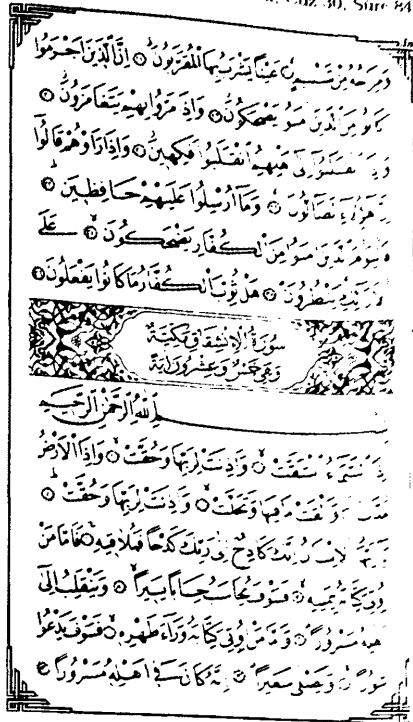 Cüz 30, Sûre 84
وَمِزَاجُهُ مِنْ تَسْنِيمٍ عَيْنًا يَشْرَبُ بِهَا الْمُقَرَّبُونَ اِنَّ الَّذ۪ينَ اَجْرَمُوا
كَانُوا مِنَ الَّذ۪ينَ اٰمَنُوا يَضْحَكُونَ وَاِذَا مَرُّوا بِهِمْ يَتَغَامَزُونَ
وَاِذَا انْقَلَبُٓوا اِلٰٓى اَهْلِهِمُ انْقَلَبُوا فَكِه۪ينَ وَاِذَا رَاَوْهُمْ قَالُٓوا
اِنَّ هٰٓؤُ۬لَٓاءِ لَضَٓالُّونَ وَمَٓا اُرْسِلُوا عَلَيْهِمْ حَافِظ۪ينَ
فَالْيَوْمَ الَّذ۪ينَ اٰمَنُوا مِنَ الْكُفَّارِ يَضْحَكُونَ عَلَى
الْاَرَٓائِكِ يَنْظُرُونَ هَلْ ثُوِّبَ الْكُفَّارُ مَا كَانُوا يَفْعَلُونَ
سُورَةُ الْاِنْشِقَاقِ مَكِّيَّةٌ
وَهِيَ خَمْسٌ وَعِشْرُونَ اٰيَةً
اللّٰهِ الرَّحْمٰنِ الرَّح۪يمِ
اِذَا السَّمَٓاءُ انْشَقَّتْ وَاَذِنَتْ لِرَبِّهَا وَحُقَّتْ وَاِذَا الْاَرْضُ
مُدَّتْ وَاَلْقَتْ مَا ف۪يهَا وَتَخَلَّتْ وَاَذِنَتْ لِرَبِّهَا وَحُقَّتْ
يَٓا اَيُّهَا الْاِنْسَانُ اِنَّكَ كَادِحٌ اِلٰى رَبِّكَ كَدْحًا فَمُلَاق۪يهِ فَاَمَّا مَنْ
اُو۫تِيَ كِتَابَهُ بِيَم۪ينِه۪ فَسَوْفَ يُحَاسَبُ حِسَابًا يَس۪يرًا وَيَنْقَلِبُ اِلٰٓى
اَهْلِه۪ مَسْرُورًا وَاَمَّا مَنْ اُو۫تِيَ كِتَابَهُ وَرَٓاءَ ظَهْرِه۪ فَسَوْفَ يَدْعُوا
ثُبُورًا وَيَصْلٰى سَع۪يرًا اِنَّهُ كَانَ ف۪ٓي اَهْلِه۪ مَسْرُورًا